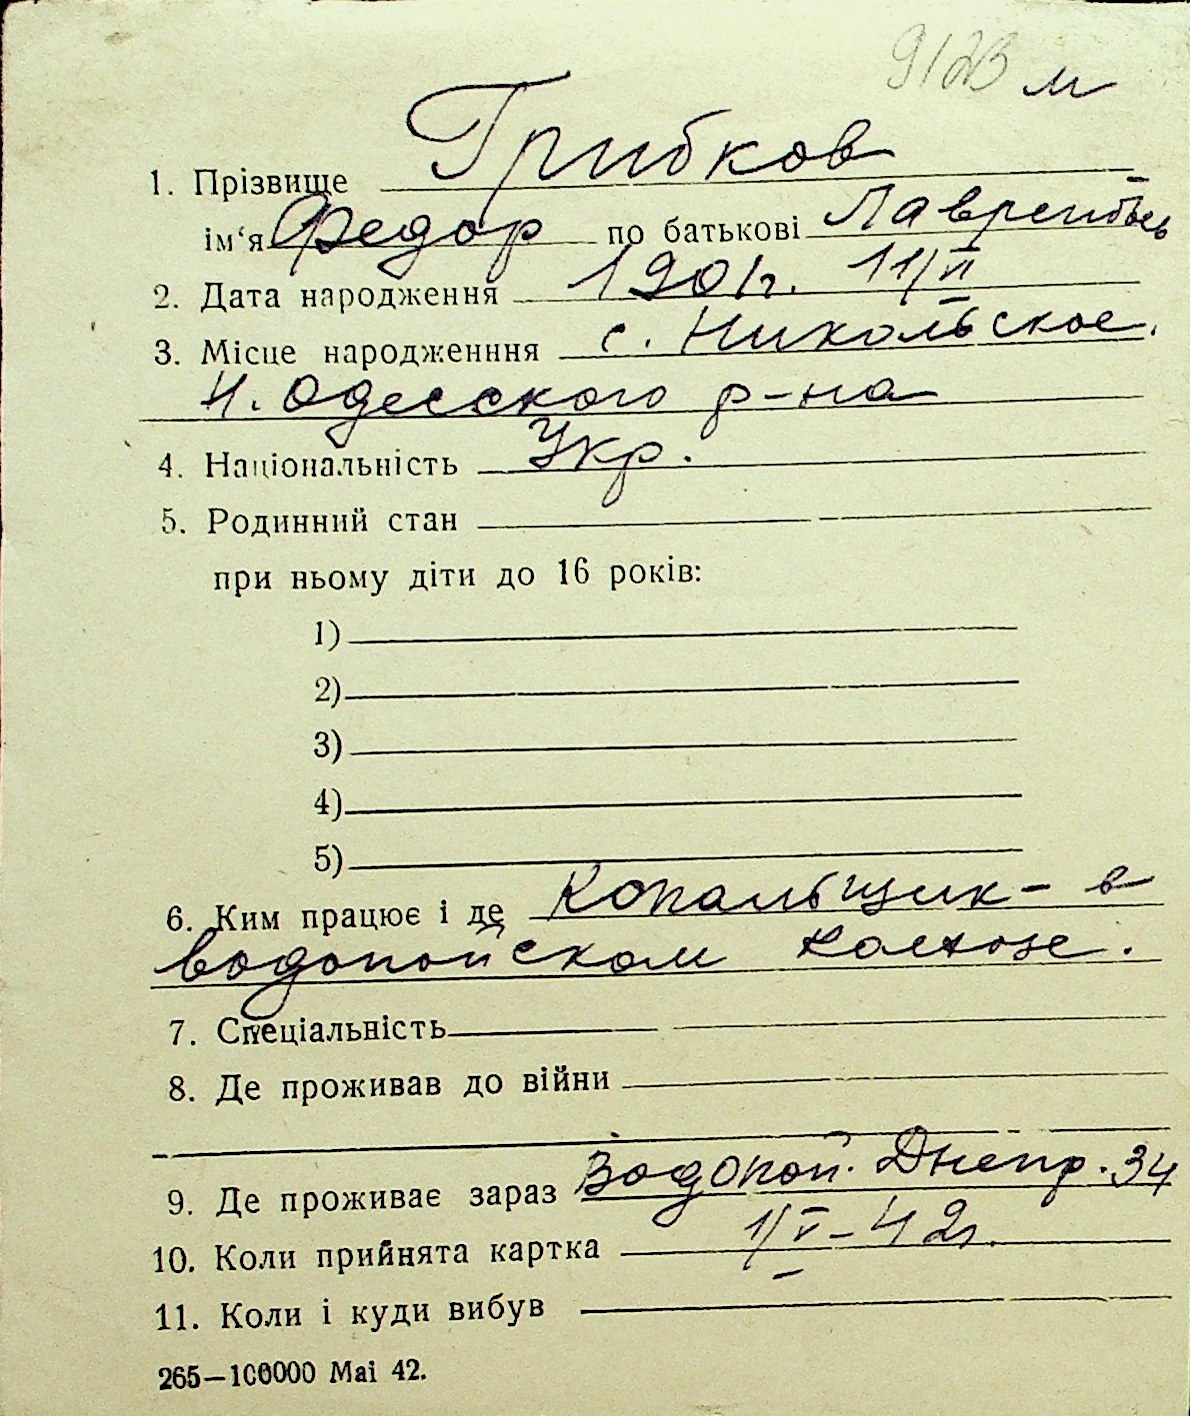 9123 м
1. Прізвище Грибков
ім‘я Федор по батькові Лаврентьев
2. Дата народження 1901г. 11/VI
3. Місце народженння с. Никольское.
Н. Одесского р-на
4. Національність Укр.
5. Родинний стан
при ньому діти до 16 років:
1)
2)
3)
4)
5)
6. Ким працює і де Копальщик - в
водопойском колхозе.
7. Спеціальність
8. Де проживав до війни
9. Де проживає зараз Водопой. Днепр. 34
10. Коли прийнята картка 1/V-42г.
11. Коли і куди вибув
265—100000 Mai 42.